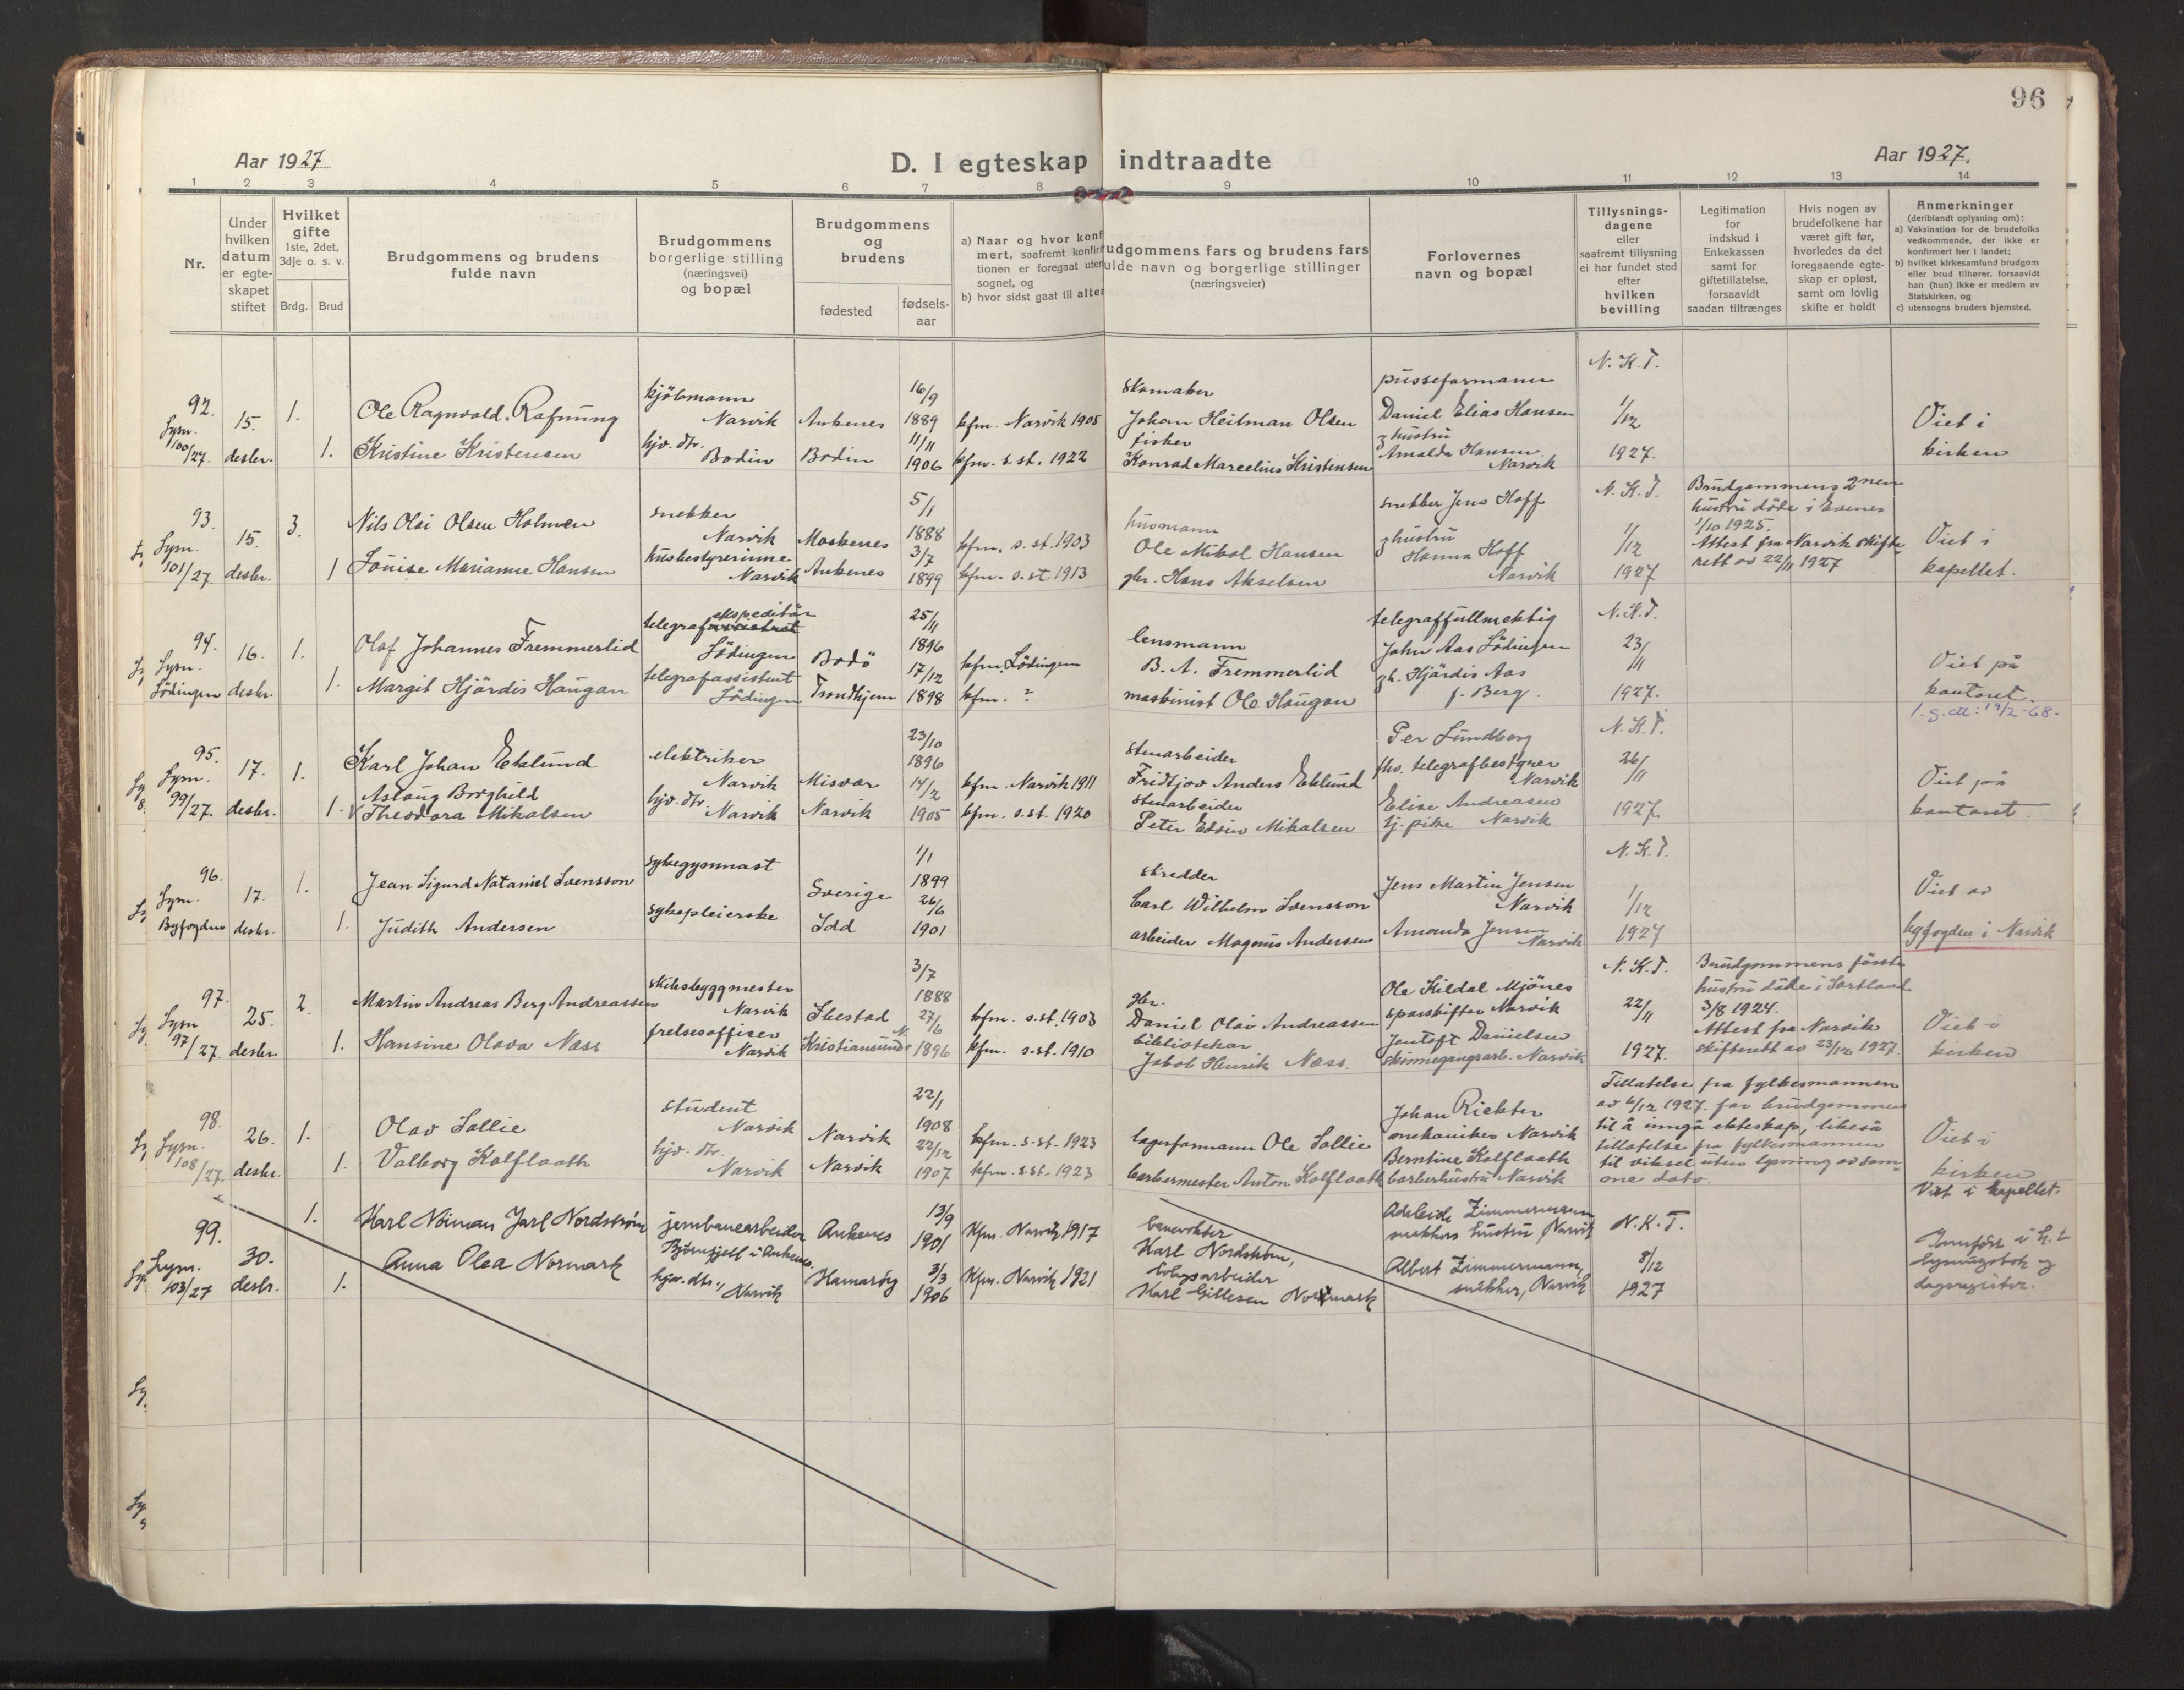 96
Aar 1927
D. I egteskap indtraadte
Aar 1927.
1 2 3 4 5 6 7 8 9 10 11 12 13 14
Nr.
Under hvilken datum er egteskapet stiftet
Hvilket gifte
1ste, 2det, 3dje o. s. v.
Brdg. Brud
Brudgommens og brudens fulde navn
Brudgommens borgerlige stilling (næringsvei) og bopæl
Brudgommens og brudens
fødested
fødselsaar
a) Naar og hvor konf
mert, saafremt konfir
tionen er foregaat uten
sognet, og
b) hvor sidst gaat til alter
udgommens fars og brudens fars
ulde navn og borgerlige stillinger
(næringsveier)
Forlovernes navn og bopæl
Tillysningsdagene eller saafremt tillysning ei har fundet sted efter hvilken bevilling
Legitimation for indskud i Enkekassen samt for giftetillatelse, forsaavidt saadan tiltrænges
Hvis nogen av brudefolkene har været gift før, hvorledes da det foregaaende egteskap er opløst, samt om lovlig skifte er holdt
Anmerkninger
(deriblandt oplysning om):
a) Vaksination for de brudefolks vedkommende, der ikke er konfirmert her i landet;
b) hvilket kirkesamfund brudgom eller brud tilhører, forsaavidt han (hun) ikke er medlem av Statskirken, og
c) utensogns bruders hjemsted.
92. Lysn. 100/27. 15. desbr. 1. 1.
Ole Ragnvald Rafnung
kjöbmann Narvik Ankenes 16/9 1889 kfm. Narvik 1905
skomaker Johan Heitman Olsen
Kristine Kristensen
hjv. dtr. Bodin Bodin 11/11 1906 kfm. s. st. 1922
fisker Konrad Marcelius Kristensen
pusseformann Daniel Elias Hansen
g hustru Arnalda Hansen Narvik
N. K. T. 1/12 1927.
Viet i kirken
93. Lysn. 101/27. 15. desbr. 3. 1
Nils Olai Olsen Holmen
snekker Narvik Moskenes 5/1 1888 kfm. s. st. 1903
husmann Ole Mikal Hansen
Louise Marianne Hansen
husbestyrerinne Narvik Ankenes 3/7 1899 kfm. s. st. 1913
gbr. Hans Akselsen
snekker Jens Hoff
g hustru Hanna Hoff Narvik
N. K. T. 1/12 1927
Brudgommens 2nen hustru döde i Evenes 1/10 1925. Attest fra Narvik skifterett av 22/11 1927
Viet i kapellet.
94. Lysn. Lödingen 16. desbr. 1. 1.
Olaf Johannes Fremmerlid
telegrafekspeditör Lödingen Bodö 25/11 1896 kfm. Lödingen
lensmann B. A. Fremmerlid
Margit Hjördis Haugan
telegrafassistent Lödingen Trondhjem 17/12 1898 kfm. ?
maskinist Ole Haugan
telegraffullmektig John Aas Lödingen
g h. Hjördis Aas f. Berg.
N. K. T. 23/11 1927.
Viet på kontoret.
1. g. att: 19/2-68.
95. Lysn. 99/27. 17. desbr. 1. 1.
Karl Johan Eklund
elektriker Narvik Misvær 23/10 1896 kfm. Narvik 1911
stenarbeider Fridtjov Anders Eklund
Aslaug Borghild Theodora Mikalsen
hjv. dtr. Narvik Narvik 14/2 1905 kfm. s. st. 1920
stenarbeider Peter Edvin Mikalsen
Per Lundberg fhv. telegrafbestyrer Narvik
Elise Andreasen tj. pike Narvik
N. K. T. 26/11 1927.
Viet på kontoret.
96. Lysn. Byfogden 17. desbr. 1. 1.
Jean Sigurd Nataniel Svensson
sykegymnast Sverige 1/1 1899
skredder Carl Wilhelm Svensson
Judith Andersen
sykepleierske Idd 26/6 1901
arbeider Magnus Andersen
Jens Martin Jensen Narvik
Amanda Jensen Narvik
N. K. T. 1/12 1927
Viet av byfogden i Narvik
97. Lysn 97/27. 25. desbr. 2. 1.
Martin Andreas Berg Andreassen
skibsbyggmester Narvik Ibestad 3/7 1888 kfm. s. st. 1903
gbr. Daniel Olai Andreassen
Hansine Olava Næss
frelsesoffiser Narvik Kristiansund N. 27/6 1896 kfm. s. st. 1910
bibliotekar Jakob Henrik Næss.
Ole Kildal Mjönes sporskifter Narvik
Jentoft Danielsen skinnegangsarb. Narvik
N. K. T. 22/11 1927.
Brudgommens förste hustru döde i Sortland 3/8 1924. Attest fra Narvik skifterett av 23/12 1927.
Viet i kirken
98. Lysn. 108/27. 26. desbr. 1. 1.
Olav Sollie
student Narvik Narvik 22/1 1908 kfm. s. st. 1923
lagerformann Ole Sollie
Valborg Kolflaath
hjv. dtr. Narvik Narvik 22/12 1907 kfm. s. st. 1923
barbermester Anton Kolflaath
Johan Richter mekaniker Narvik
Berntine Kolflaath barberhustru Narvik
Tillatelse fra fylkesmannen av 6/12 1927. for brudgommen til å inngå ekteskap, likeså tillatelse fra fylkesmannen til vielsel uten lysning av samme dato.
Viet i kirken
99. Lysn. 103/27 30. desbr. 1. 1.
Karl Nöiman Jarl Nordström
jernbanearbeider Bjørnfjell i Ankenes Ankenes 13/9 1901 Kfm. Narvik 1917
banevokter Karl Nordström,
Anna Olea Normark
hjv. dtr., Narvik Hamarøy 3/3 1906 Kfm. Narvik 1921
bolagsarbeider Karl Gillesen Normark
Adeleide Zimmermann snekkers hustru, Narvik
Albert Zimmermann, snekker, Narvik
N. K. T. 8/12 1927
Viet i kapellet.
lysningsbok og dagsregister.